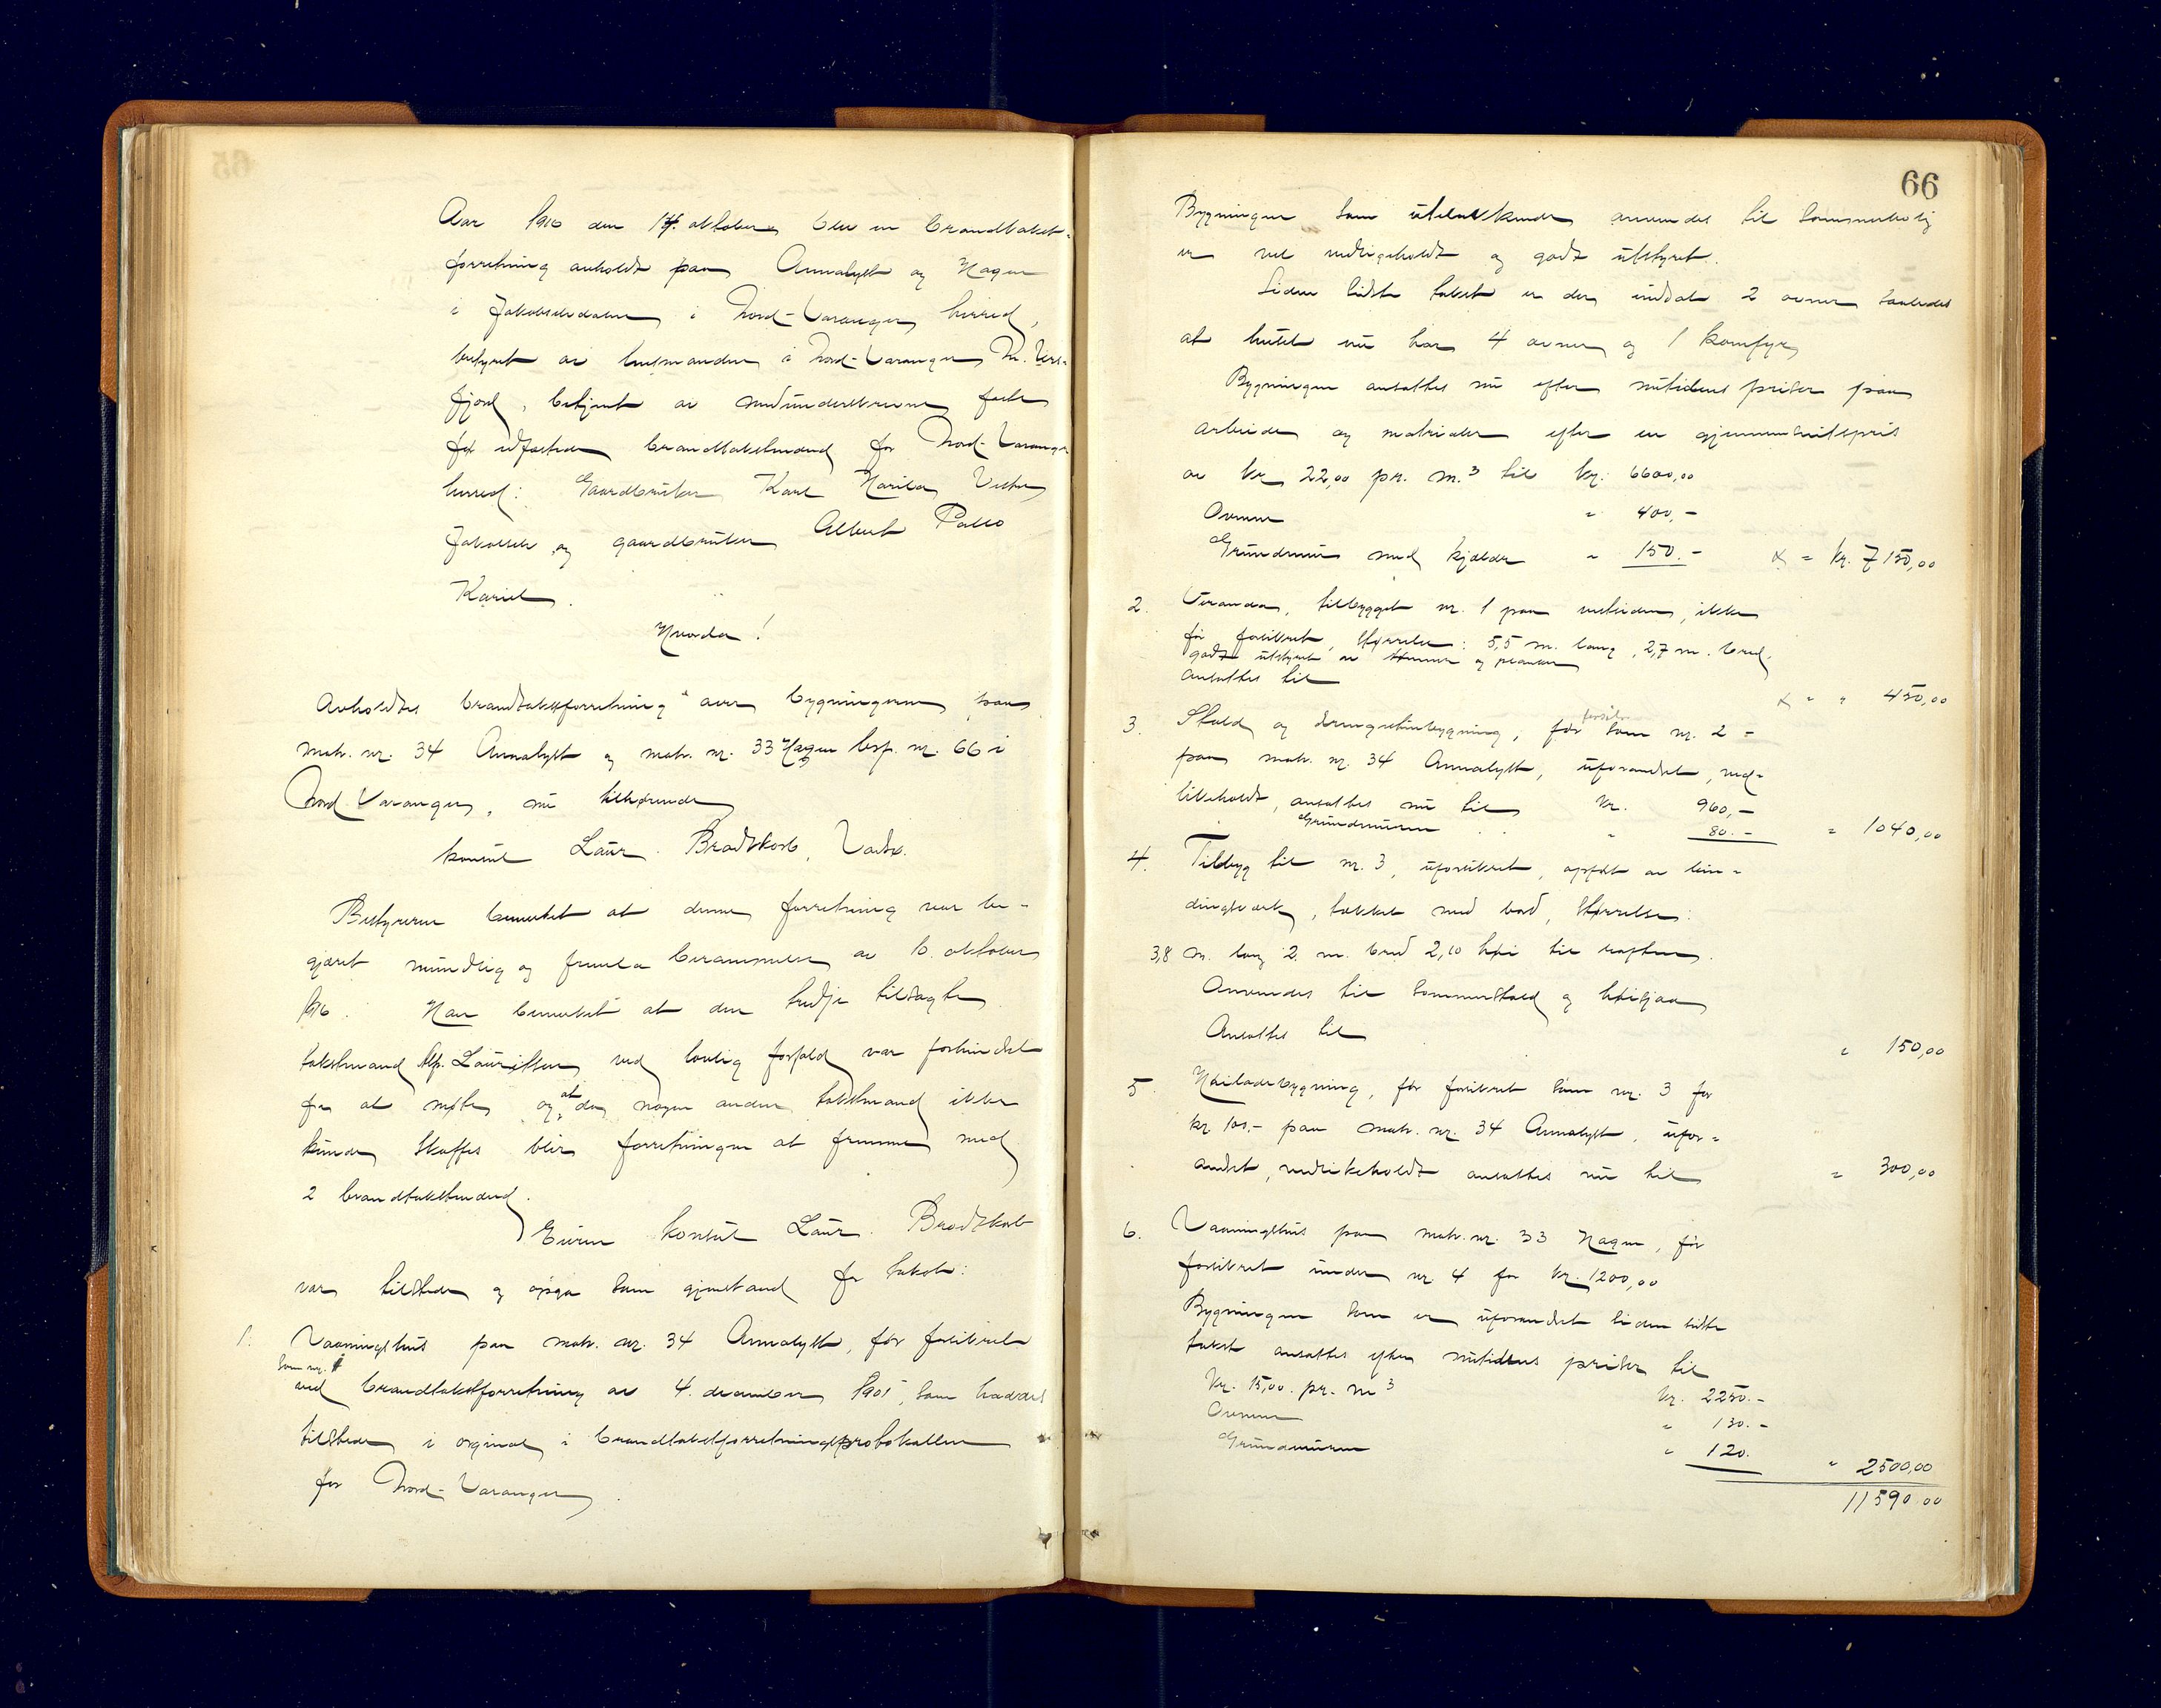 Aar 1916 den 14. oktober blev en brandtakst-
forretning avholdt paa Annalyst og Hagen
i Jakobselvdalen i Nord-Varanger herred,
bestyret av lensmanden i Nord-Varanger
fjord, betjent av medunderskrevne faste
edfæstede brandtakstmænd for Nord-Varanger
herred: Gaardbruker Karl Harila, Vestre
Jakobselv og gaardbruker Albert Pallo
Kariel.
Hvorda!
Avholdtes brandtakstforretning over bygningerne paa
matr. nr. 34 Annalyst og matr. nr. 33 Hagen lesp. nr. 66 i
Nord-Varanger, nu tilhørende
konsul Laur. Brodtkorb, Vadsø.
Bestyreren bemerket at denne forretning var be-
gjæret mundtlig og fremla berammelse av 10. oktober
1916. Han bemerket at den tredje tilsagte
takstmand Alf. Lauritsen ved lovlig forfald var forhindret
fra at møte og at da nogen anden takstmand ikke
kunde skaffes blir forretningen at fremme med
2 brandtakstmænd.
Eieren konsul Laur. Brodtkorb
var tilstede og opga som gjenstand for takst:
1. Vaaningshus paa matr. nr. 34 Annalyst, før forsikret
som nr. 1
ved brandtakstforretning av 4. december 1901, som havdes
tilstede i orginal i brandtakstforretningsprotokollen
for Nord-Varanger.
66
Bygningen som utelukkende anvendes til sommerbolig
er vel vedligeholdt og godt utstyret.
Siden sidste takst er der indsat 2 ovner saaledes
at huset nu har 4 ovner og 1 komfyr
Bygningen ansættes nu efter nutidens priser paa
arbeide og matrialer efter en gjennemsnitspris
av kr 22,00 pr. m.³ til kr. 6600,00
Ovnene " 400,-
Grundmur med kjælder " 150.- = kr. 7150,00
2. Veranda, tilbygget nr. 1 paa vestsiden, ikke
før forsikret, størrelse: 5,5 m. lang, 2,7 m. bred,
godt utstyret av tømmer og planker
ansættes til = " 450,00
3. Stald og drengestubygning, før forsikr. som nr. 2
paa matr. nr. 34 Annalyst, uforandret, ved-
likeholdt, ansættes nu til kr. 960,-
Grundmuren " 80.- " 1040,00
4. Tilbyg til nr. 3, uforsikret, opført av bin-
dingsverk, tækket med bord, størrelse:
3,8 m. lang 2 m. bred 2,10 høi til raften.
Anvendes til sommerstald og høisjaa
Ansættes til " 150,00
5. Høiladebygning, før forsikret som nr. 3 for
kr. 100.- paa matr. nr. 34 Annalyst, ufor-
andret, vedlikeholdt ansættes nu til " 300,00
6. Vaaningshus paa matr. nr. 33 Hagen, før
forsikret under nr 4 for kr. 1200,00
Bygningen som er uforandret siden sidste
takst ansættes efter nutidens priser til
kr. 15,00. pr. m³ kr. 2250.-
Ovnene " 130.-
Grundmuren " 120. " 2500,00
11590.00